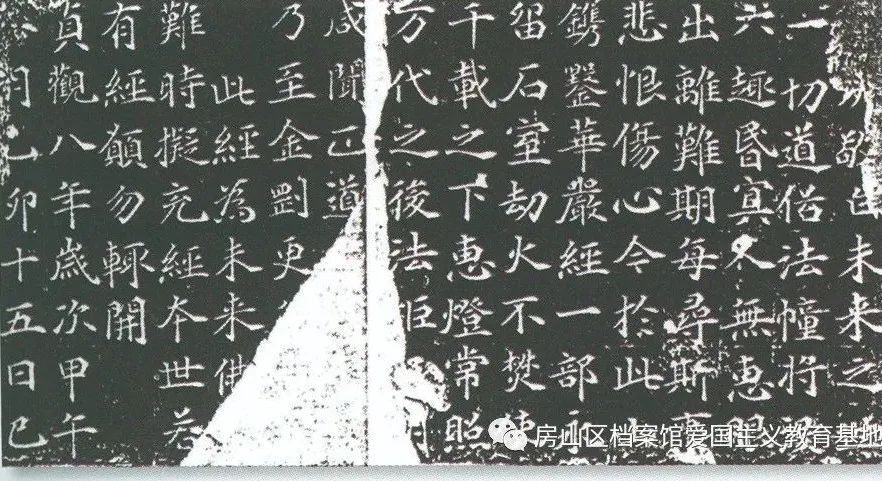 敬白未来之
一切道俗法幢将
六趣昏冥久無惠明
出離難期每尋斯事
悲恨傷心今於此
鐫鑿華嚴經一部永
留石室劫火不焚使
千載之下惠燈常昭
万代之後法炬明
咸聞正道
乃至金剛更
此經為未来佛
難時擬充經夲世若
有經願勿輙開
貞觀八年歳次甲午
月乙卯十五日己
房山区档案馆爱国主义教育基地